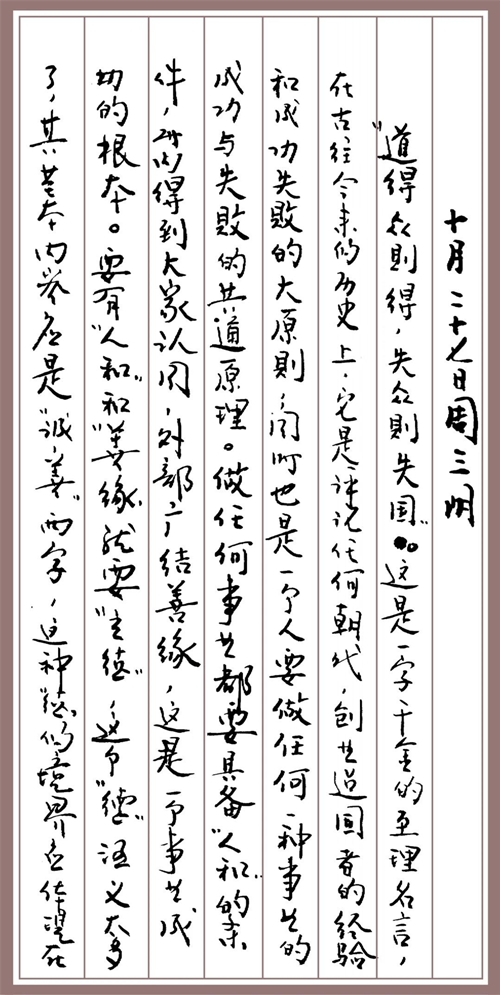 十月二十七日周三 明
"道得众则得，失众则失国"。这是一字千金的至理名言，
在古往今来的历史上，它是评论任何朝代，创业造国者的经验
和成功失败的大原则，同时也是一个人要做任何一种事业的
成功与失败的共通原理。做任何事业都要具备"人和"的条
件，内得到大家认同，外部广结善缘，这是一个事业成
功的根本。要有"人和"和"善缘"就要"立德"，这个"德"涵义太多
了，其基本内容应是"诚、善"两字，这种"德"的境界应体现在